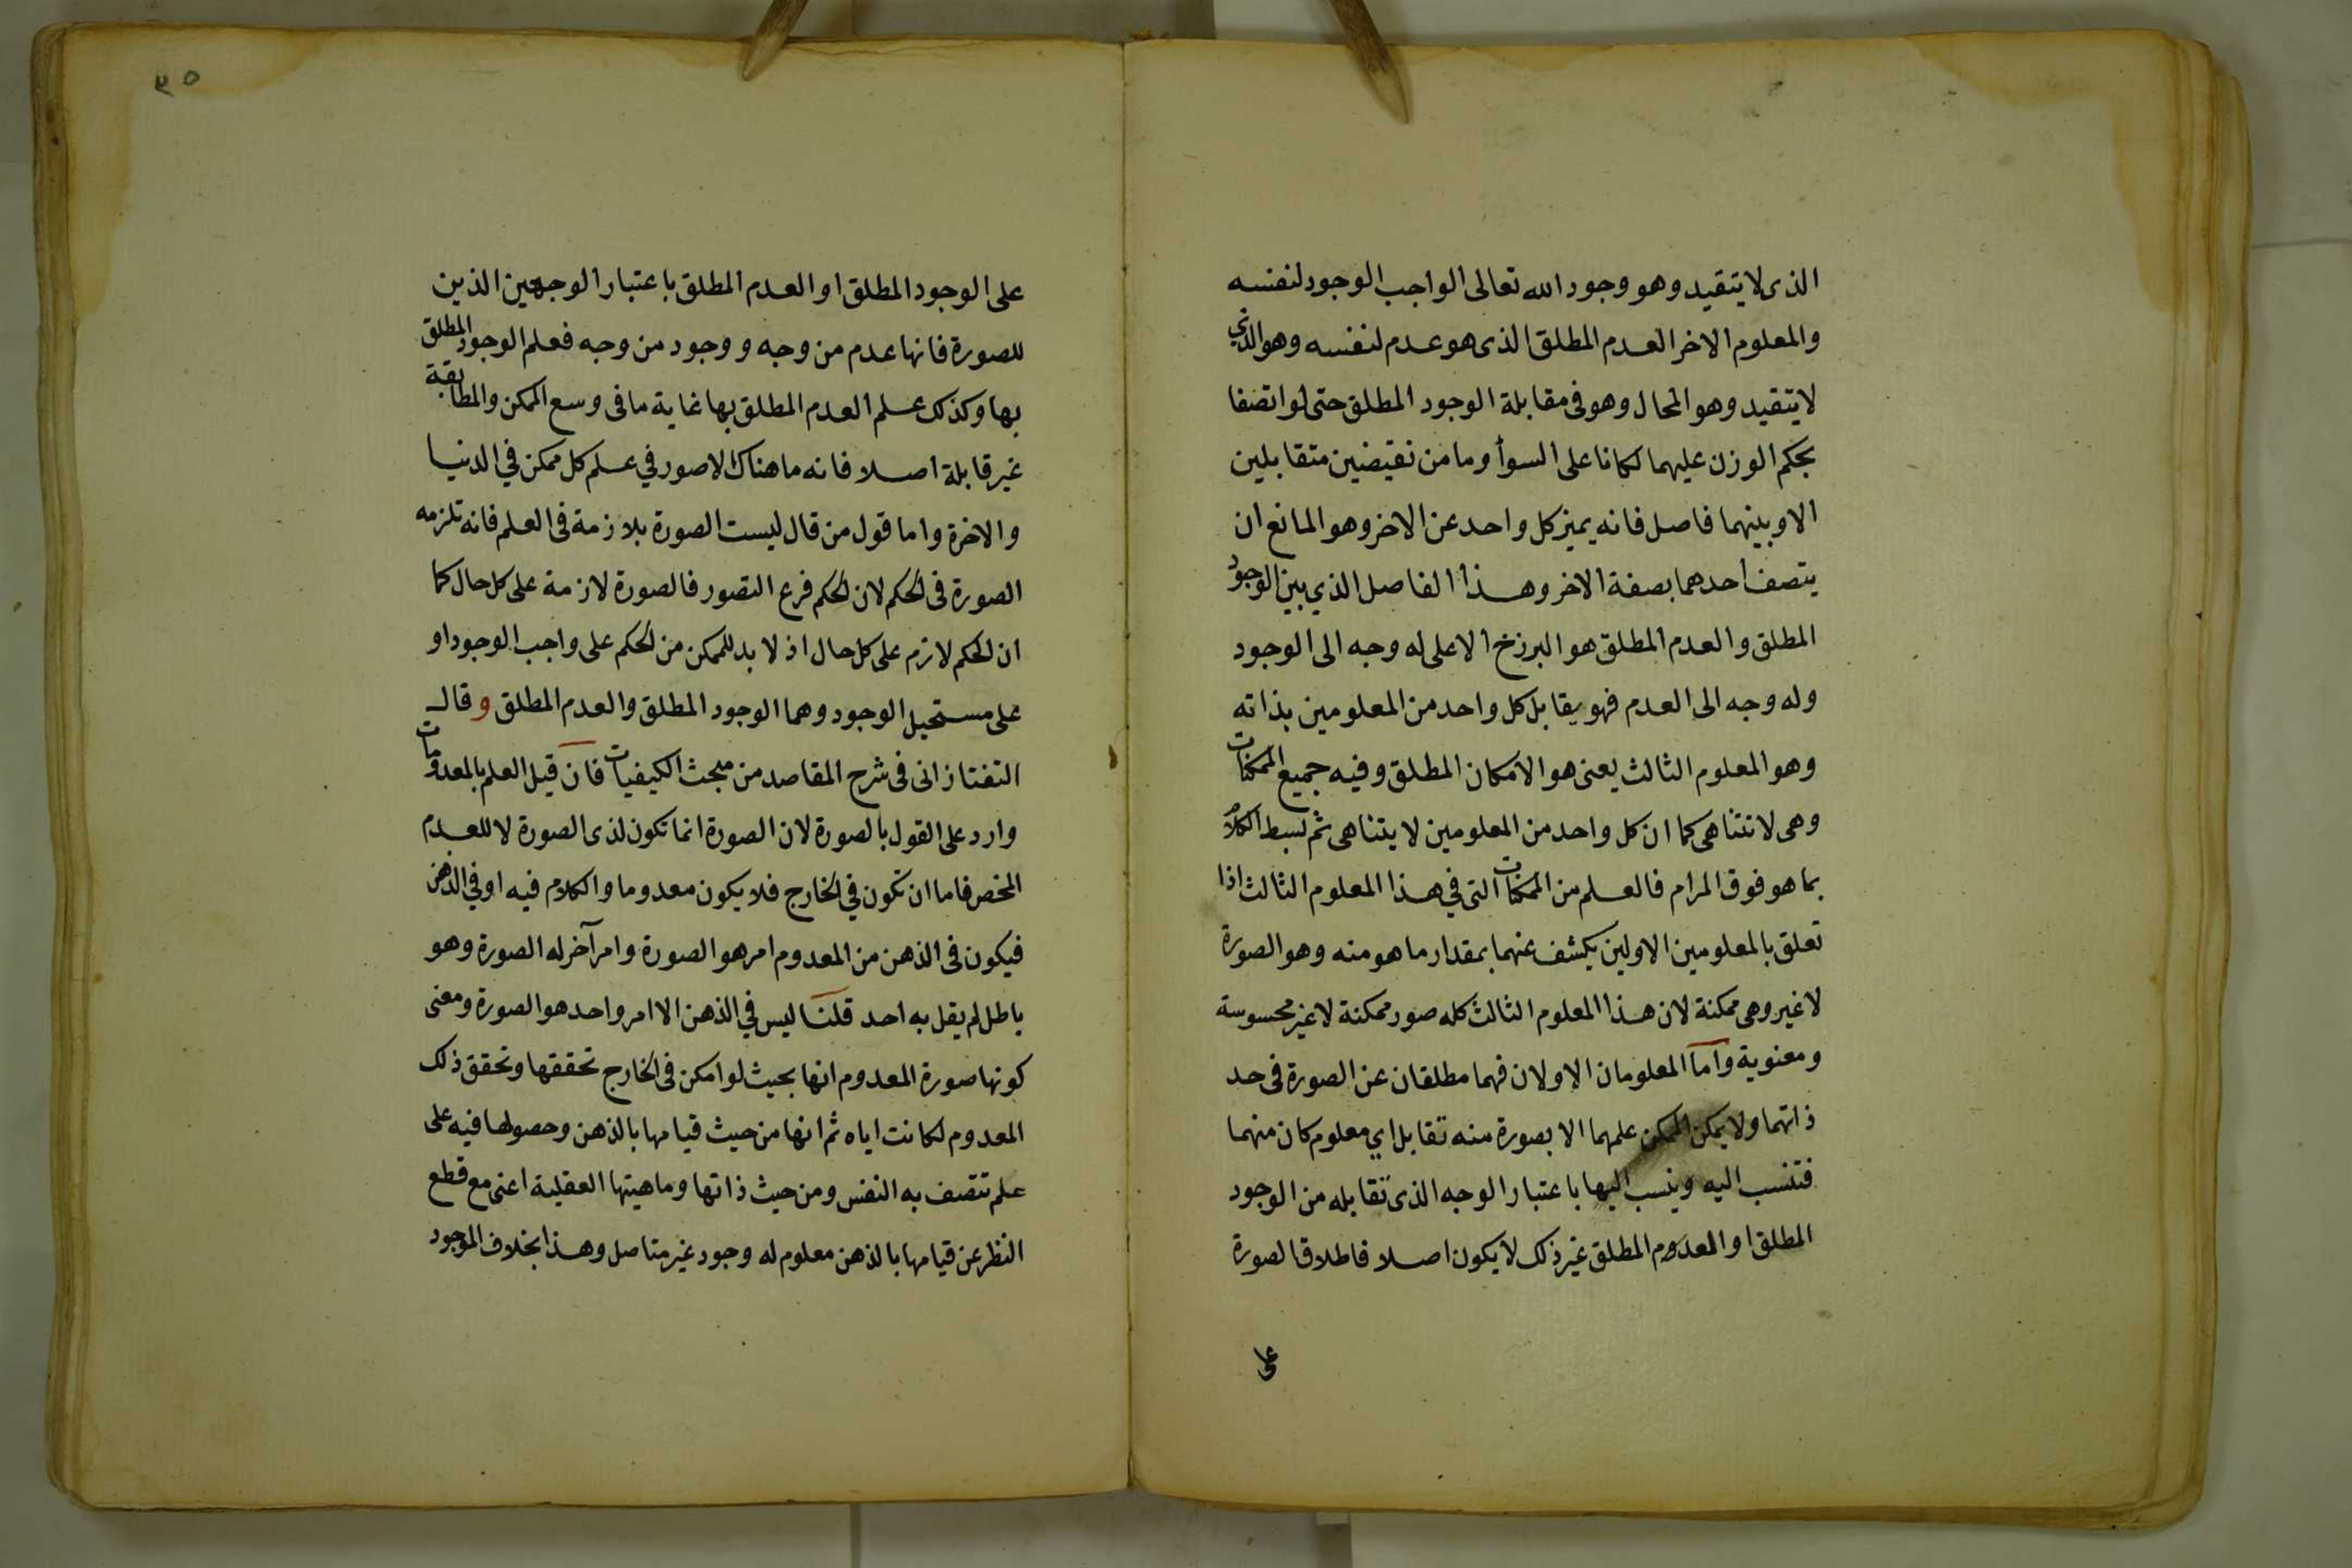 الذى لا يتقيد وهو وجود الله تعالى الواجب الوجود لنفسه
والمعلوم الاخر العدم المطلق الذى هو عدم لنفسه وهو الذي
لا يتقيد وهو المحال وهو فى مقابلة الوجود المطلق حتى لو اتصفا
بحكم الوزن عليهما لكانا على السوأ وما من نقيضين متقابلين
الا وبينهما فاصل فانه يميز كل واحد عن الاخر وهو المانع ان
يتصف احدهما بصفة الاخر وهذا الفاصل الذي بين الوجود
المطلق والعدم المطلق هو البرزخ الاعلى له وجه الى الوجود
وله وجه الى العدم فهو يقابل كل واحد من المعلومين بذاته
وهو المعلوم الثالث يعنى هو الامكان المطلق وفيه جميع الممكنات
وهى لا تتناهى كما ان كل واحد من المعلومين لا يتناهى ثم بسط الكلام
بما هو فوق المرام فالعلم من الممكنات التى في هذا المعلوم الثالث اذا
تعلق بالمعلومين الاولين يكشف عنهما بمقدار ما هو منه وهو الصورة
لا غير وهى ممكنة لان هذا المعلوم الثالث كله صور ممكنة لا غير محسوسة
ومعنوية واما المعلومان الاولان فهما مطلقان عن الصورة فى حد
ذاتهما ولا يمكن الممكن علمهما الا بصورة منه تقابل اي معلوم كان منهما
فتنسب اليه وينسب اليها باعتبار الوجه الذى تقابله من الوجود
المطلق او المعدوم المطلق غير ذلك لا يكون اصلا فاطلاق الصورة
على
٣٥
على الوجود المطلق او العدم المطلق باعتبار الوجهين الذين
للصورة فانها عدم من وجه و وجود من وجه فعلم الوجود المطلق
بها وكذلك علم العدم المطلق بها غاية ما فى وسع الممكن والمطابقة
غير قابلة اصلا فانه ما هناك الا صور في علم كل ممكن في الدنيا
والاخرة واما قول من قال ليست الصورة بلازمة فى العلم فانه تلزمه
الصورة فى الحكم لان الحكم فرع التصور فالصورة لازمة على كل حال كما
ان الحكم لازم على كل حال اذ لا بد للممكن من الحكم على واجب الوجود او
على مستحيل الوجود وهما الوجود المطلق والعدم المطلق و قال
التفتازانى فى شرح المقاصد من مبحث الكيفيات فان قيل العلم بالمعدومات
وارد على القول بالصورة لان الصورة انما تكون لذى الصورة لا للعدم
المحض فاما ان تكون في الخارج فلا يكون معدوما والكلام فيه او في الذهن
فيكون فى الذهن من المعدوم امر هو الصورة وامر آخر له الصورة وهو
باطل لم يقل به احد قلنا ليس في الذهن الا امر واحد هو الصورة ومعنى
كونها صورة المعدوم انها بحيث لو امكن فى الخارج تحققها وتحقق ذلك
المعدوم لكانت اياه ثم انها من حيث قيامها بالذهن وحصولها فيه على
علم تتصف به النفس ومن حيث ذاتها وماهيتها العقلية اعنى مع قطع
النظر عن قيامها بالذهن معلوم له وجود غير متاصل وهذا بخلاف الموجود